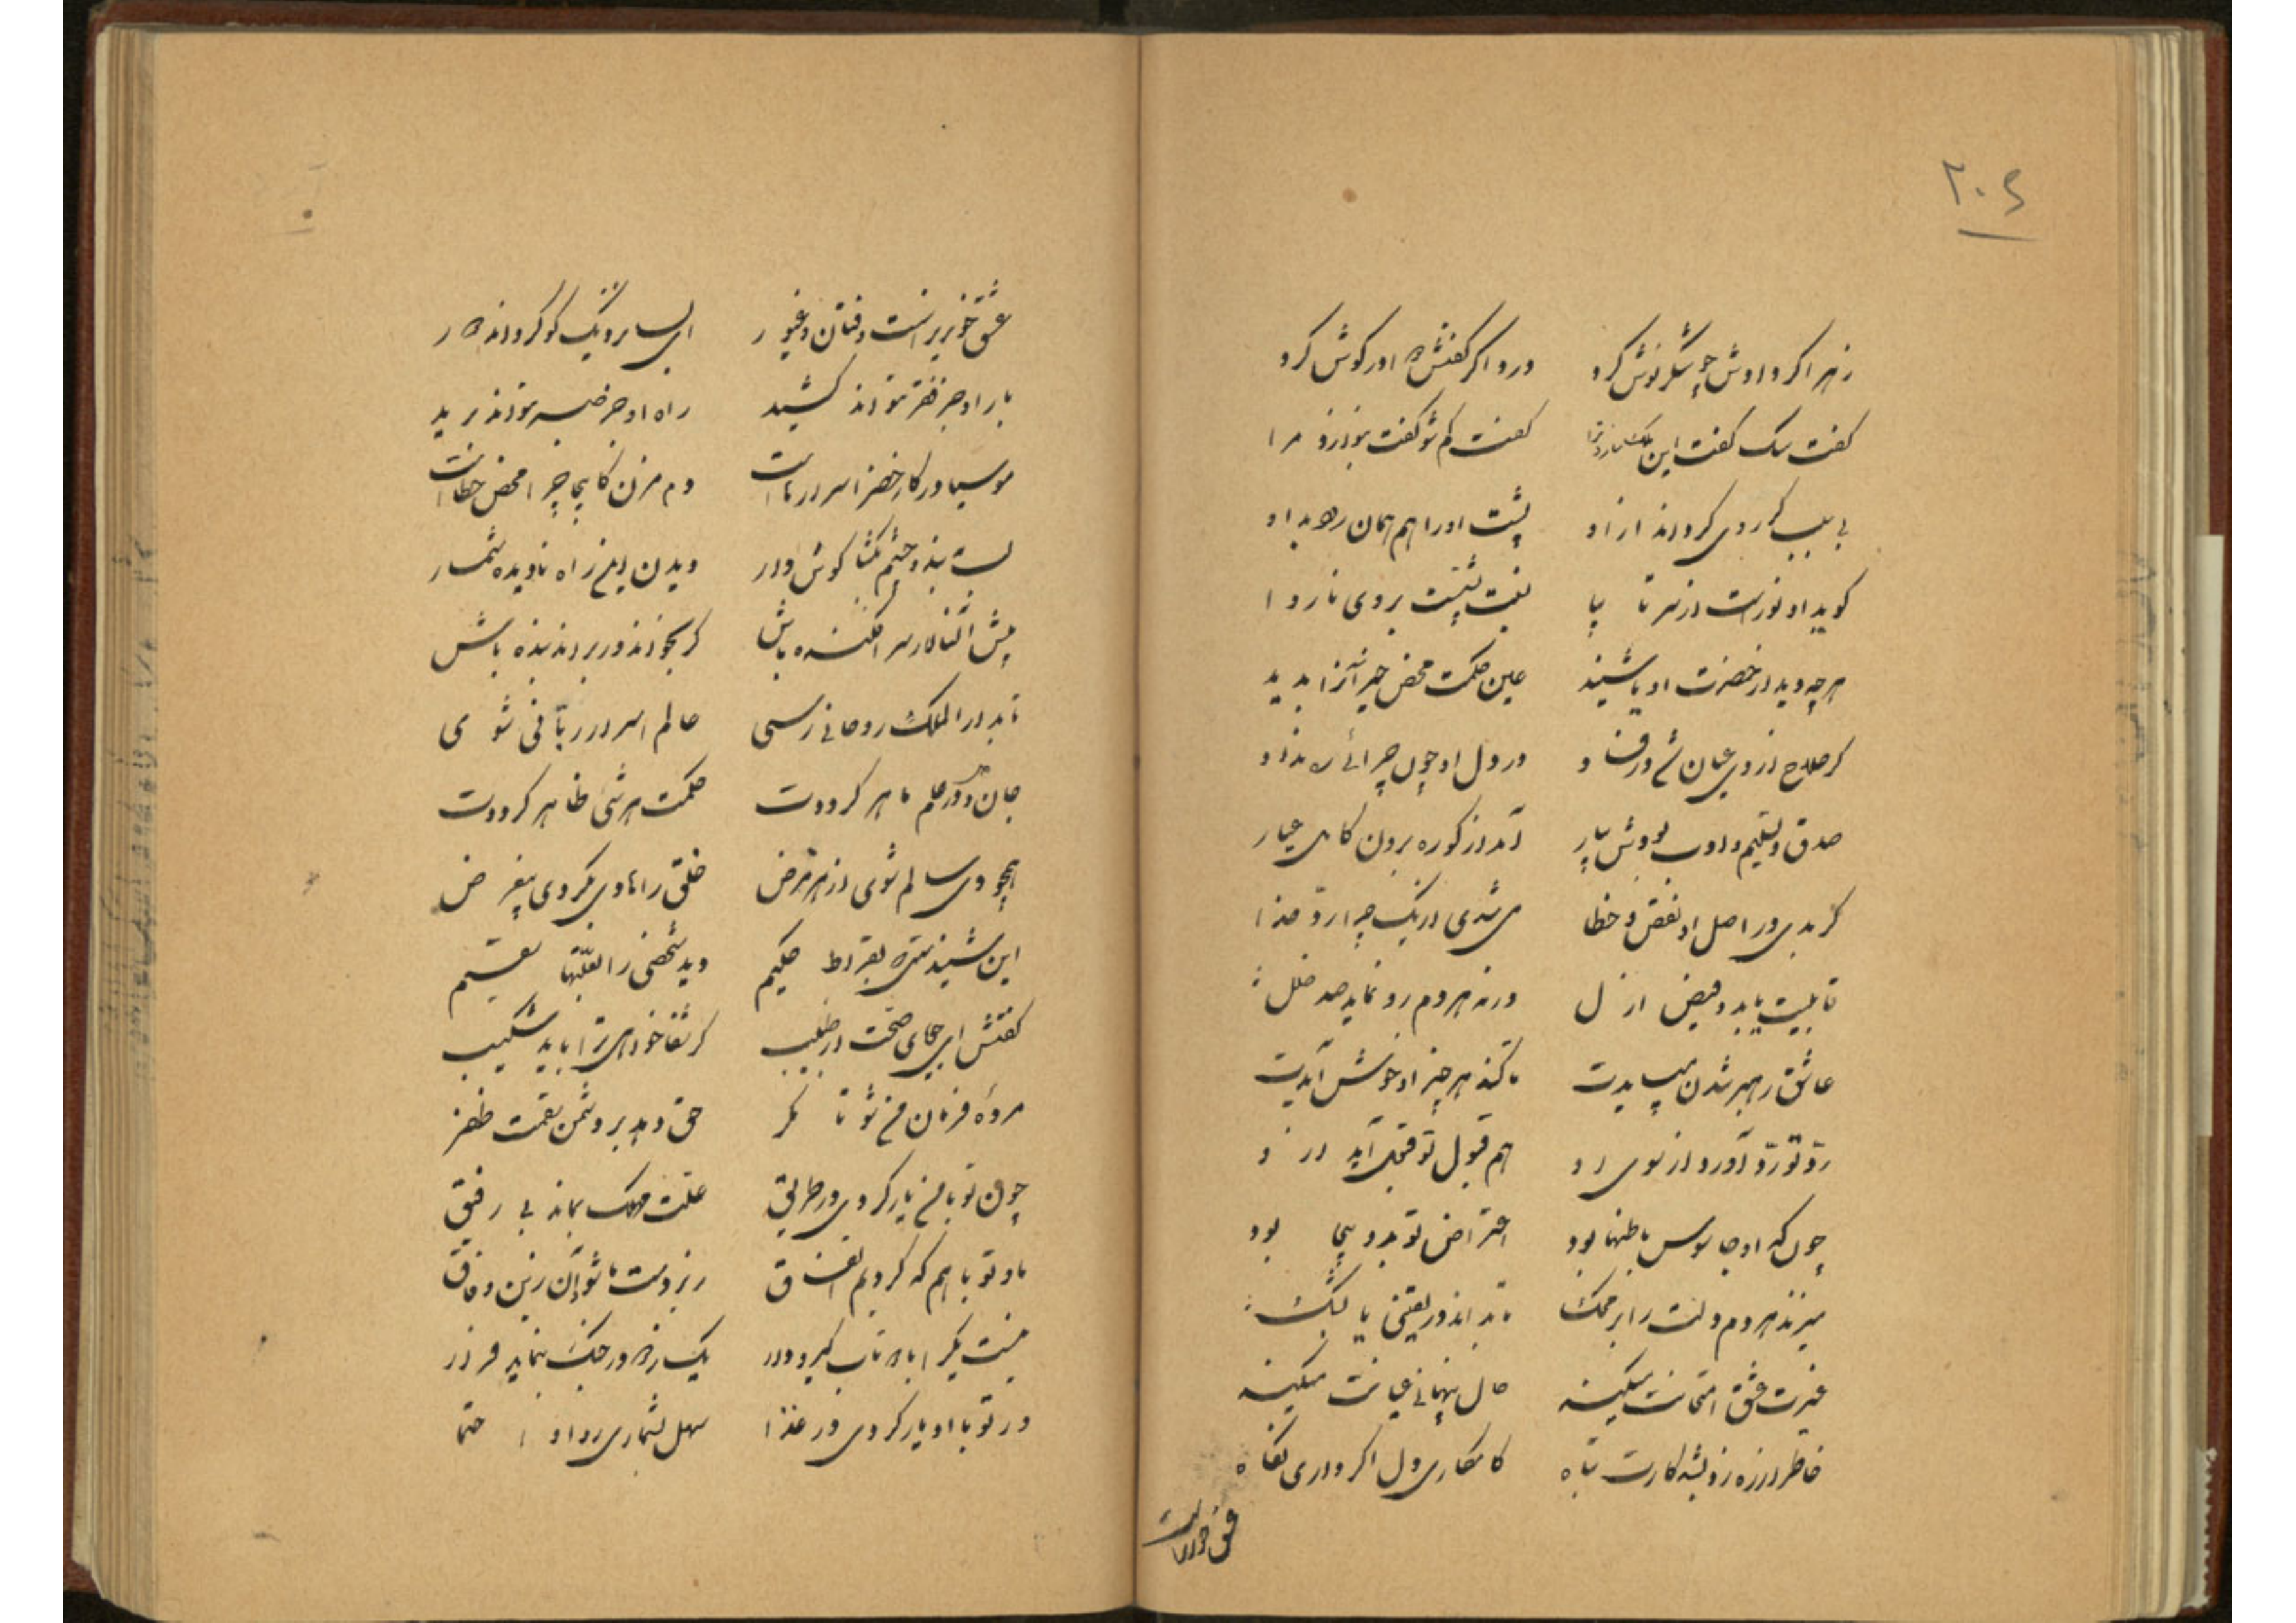 ۲۰٤
زهر اگر دادش چو شکر نوش کرد درد اگر گفتش که اور گوش کرد
گفت سگ گفت این گفت کم شو گفت مرا
بی سبب کر روی کرداند از او پشت او را هم همان رو بد او
گوید او نور است از سر تا بپا نیست پشت بروی ناروا
هرچه دید از حضرت او یا شنید عین حکمت محض خیر آنرا بدید
کر صلاح از وی عیان شد ور فساد در دل او چون چرائی ره نداد
صدق و تسلیم و ادب بودش بیار آمد از کوره برون کامل عیار
کر بدی در اصل او نقص و خطا می شدی در یک چرا رد قضا
قابلیت باید و فیض ازل ورنه هر دم رو نماید صد خلل
عاشق رهبر شدن میبایدت تا کند هر چیز او خوش آیدت
رد تو رد آورد از سوی او هم قبول تو قبول آید از او
چون که او جاسوس باطنها بود اعتراض تو بدو بیجا بود
میزند هر دم دلت را بر محک تا بداند در یقینی یا بشک
غیرت عشق امتحانت میکند حال پنهانی عیانت میکند
خاطر ار زاندیشه کارت تباه کامکاری دل اگر داری نگاه
عشق خونریز است
عشق خونریز است و فتان و غیور ای بسا نزدیک کو کرداند دور
بار او جز فقر نتواند کشید راه او جز خضر نتواند برید
موسیا در کار خضر اسرارهاست دم مزن کاینجا چرا محض خطاست
لب ببند و چشم بگشا گوش دار دیدن این راه نادیده شمار
پیش استاد سر افکنده باش کر بخواند ور براند بنده باش
تا بدار الملک روحانی رسی عالم اسرار ربانی شوی
جان در علم ماهر کرددت حکمت هر شیء ظاهر کرددت
همچو وی سالم شوی از هر مرض خلق را هادی بکردی بیغرض
این شنیدستی که بقراط حکیم دید شخصی را بعلتها سقیم
گفتش ای جویای صحت از طبیب کر شفا خواهی ترا باید شکیب
مردهٔ فرمان من شو تا مکر حق دهد بر دشمن سقمت ظفر
چون تو با من یار کردی در طریق علت مهلک بماند بی رفیق
ما و تو با هم که کردیم اتفاق ریزد دست ما شود آن زین وفاق
نیست یک را با دو تاب گیر و دار یک زدو در جنگ بنماید فرار
ور تو با او یار کردی در غذا سهل بشماری دوا را حتما